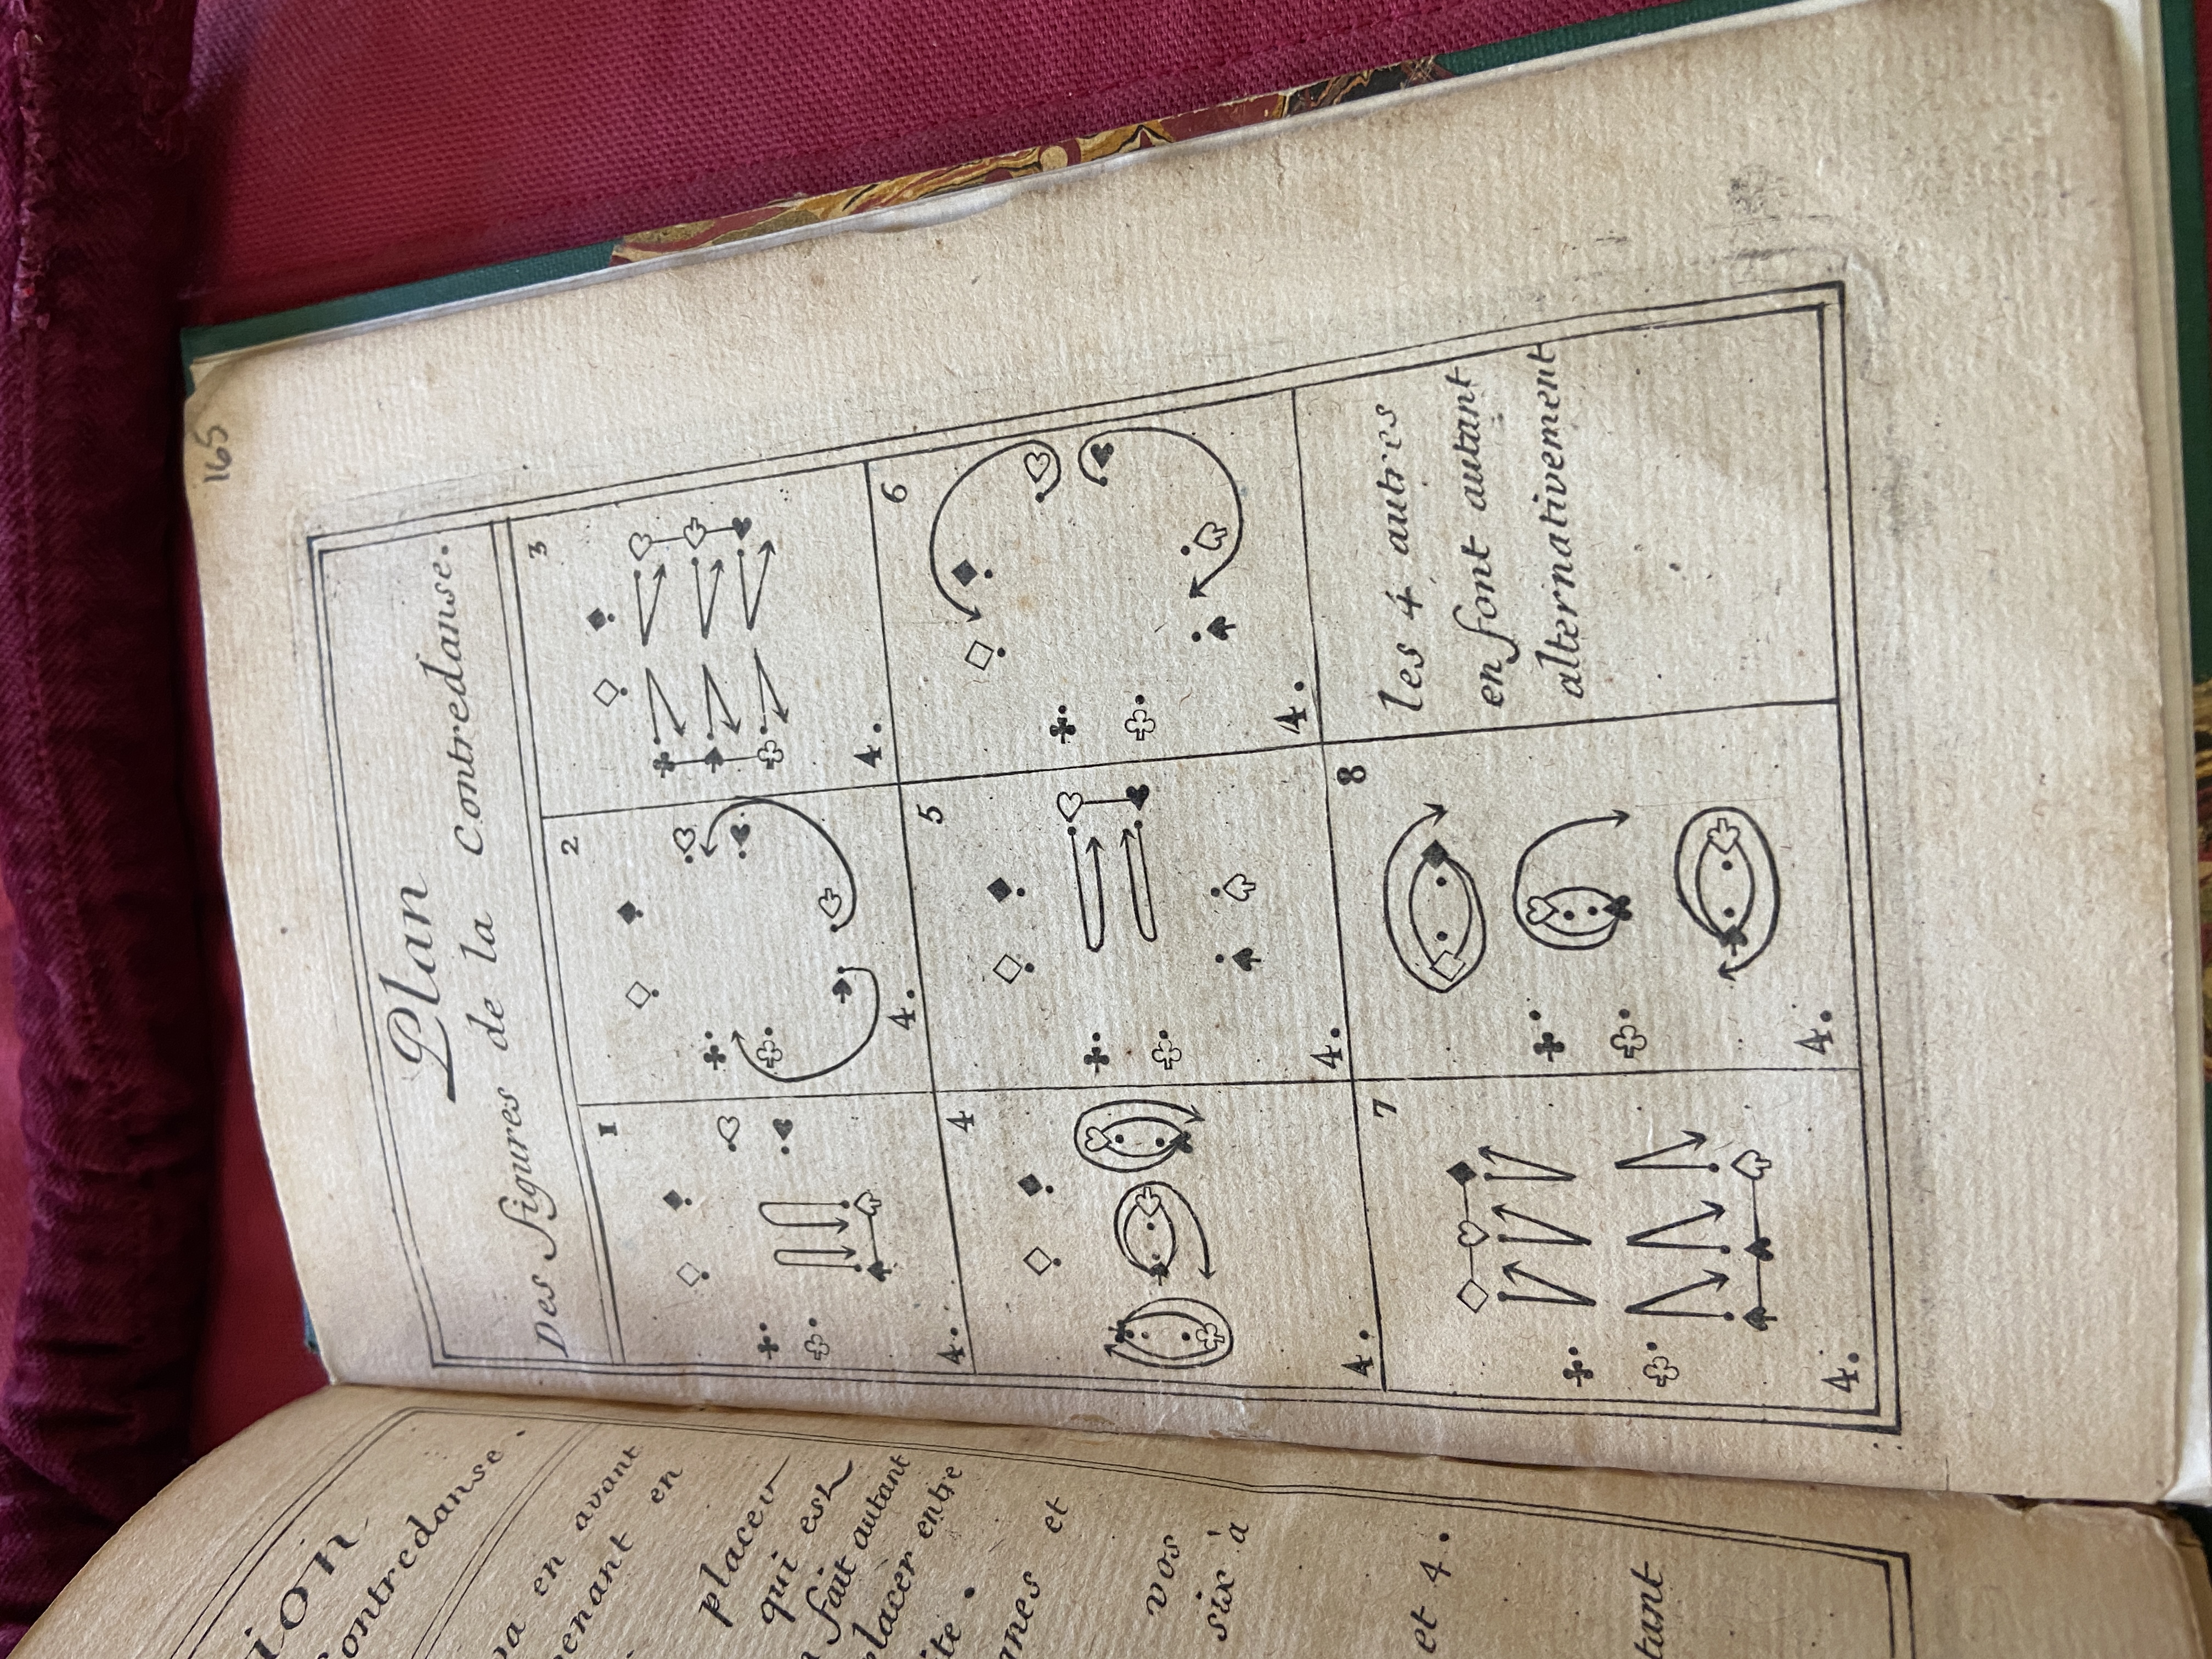 165
Plan
Des figures de la Contredanse.
1
4.
2
4.
3
4.
4
4.
5
4.
6
4.
7
4.
8
4.
les 4 autres
en font autant
alternativement
Contredanse.
en avant
en
placer
qui est
fait autant
entre
et
vos
six à
et 4.